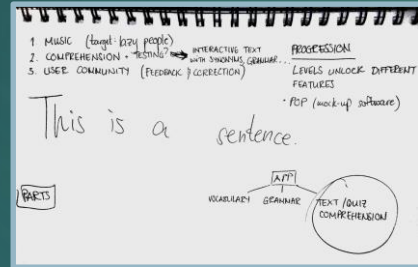 1. MUSIC (target: lazy people)
2. COMPREHENSION + TESTING? → INTERACTIVE TEXT
WITH SYNONYMS, GRAMMAR...
3. USER COMMUNITY (FEEDBACK / CORRECTION)
PROGRESSION
LEVELS UNLOCK DIFFERENT
FEATURES
• POP (mock-up software)
This is a sentence.
PARTS
APP
VOCABULARY GRAMMAR TEXT/QUIZ
COMPREHENSION